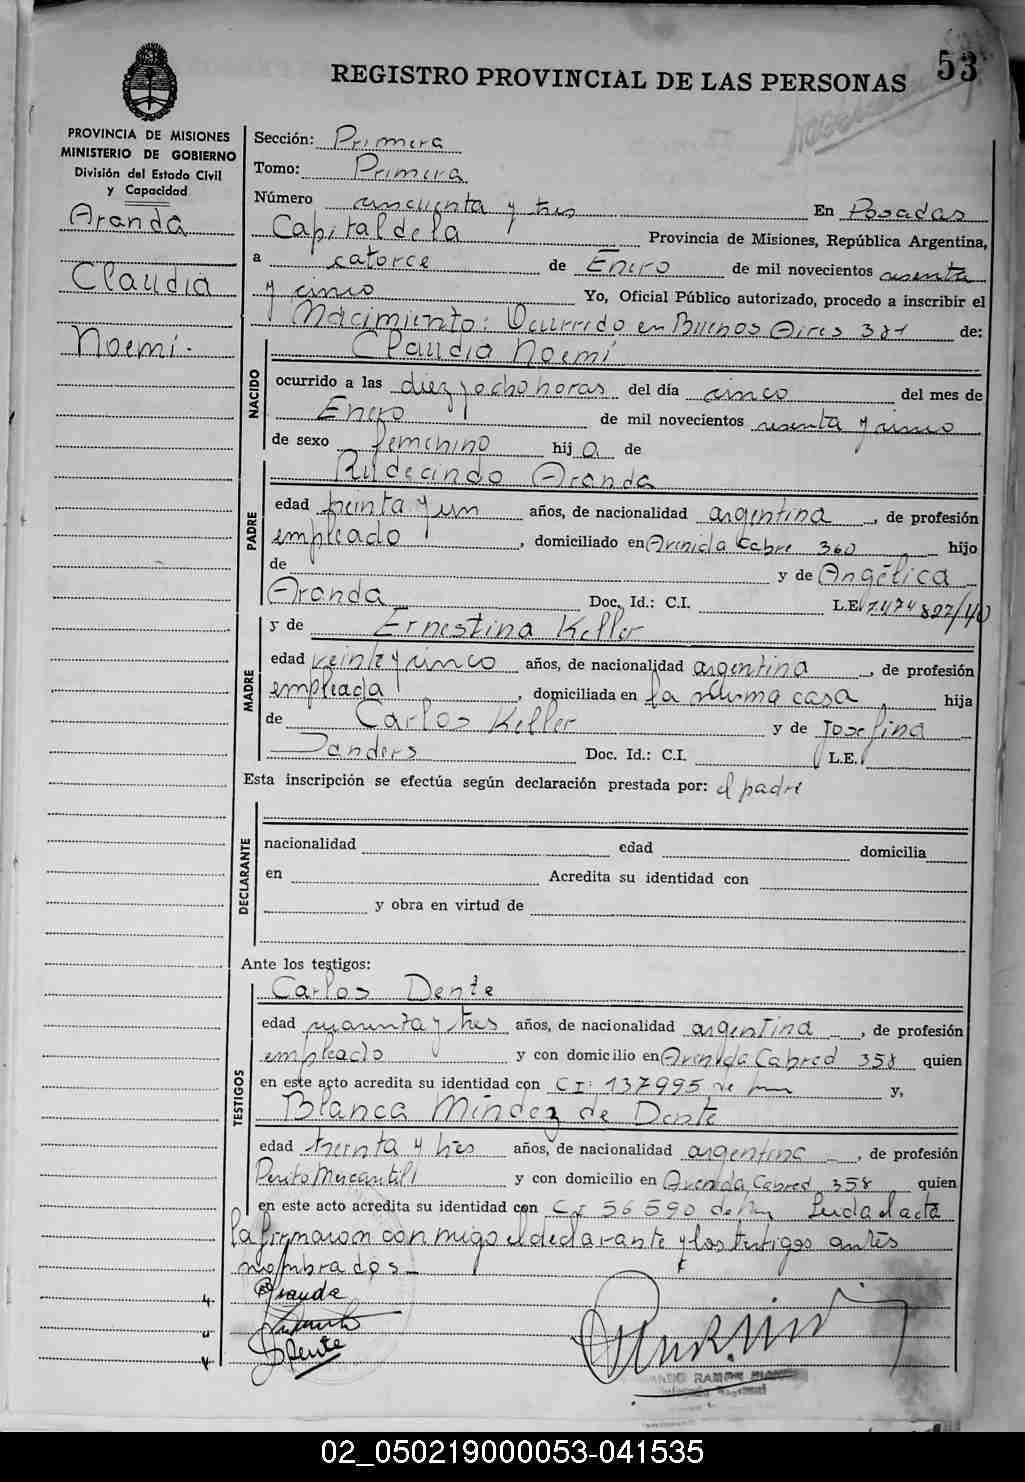 REGISTRO PROVINCIAL DE LAS PERSONAS
53
PROVINCIA DE MISIONES
MINISTERIO DE GOBIERNO
División del Estado Civil
y Capacidad
Aranda
Claudia
Noemí.
Sección: Primera
Tomo: Primera
Número cincuenta y tres En Posadas
Capital de la Provincia de Misiones, República Argentina,
a catorce de Enero de mil novecientos sesenta
y cinco Yo, Oficial Público autorizado, procedo a inscribir el
Nacimiento: Ocurrido en Buenos Aires 381 de:
NACIDO
Claudia Noemí
ocurrido a las diez y ocho horas del día cinco del mes de
Enero de mil novecientos sesenta y cinco
de sexo femenino hij a de
PADRE
Rudecindo Aranda
edad treinta y un años, de nacionalidad argentina, de profesión
empleado, domiciliado en Avenida Cabre 360, hijo
de y de Angélica
Aranda Doc. Id.: C.I. L.E. 7474827/40
y de Ernestina Keller
MADRE
edad veinte y cinco años, de nacionalidad argentina, de profesión
empleada, domiciliada en la misma casa, hija
de Carlos Keller y de Josefina
Sanders Doc. Id.: C.I. L.E.
Esta inscripción se efectúa según declaración prestada por: el padre
DECLARANTE
nacionalidad edad domicilia
en Acredita su identidad con
y obra en virtud de
Ante los testigos:
TESTIGOS
Carlos Dente
edad cuarenta y tres años, de nacionalidad argentina, de profesión
empleado y con domicilio en Avenida Cabred 358 quien
en este acto acredita su identidad con CI: 137995 de y,
Blanca Mindez de Dente
edad treinta y tres años, de nacionalidad argentina, de profesión
Perito Mercantil y con domicilio en Avenida Cabred 358 quien
en este acto acredita su identidad con CI 56590 de Leída el acta
la firmaron conmigo el declarante y los testigos antes
nombrados
Aranda
Dente
RAMON
02_050219000053-041535